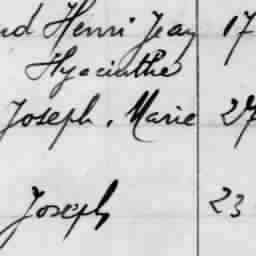 nd Henri Jean 17
Hyacinthe
Joseph, Marie 27
Joseph 23